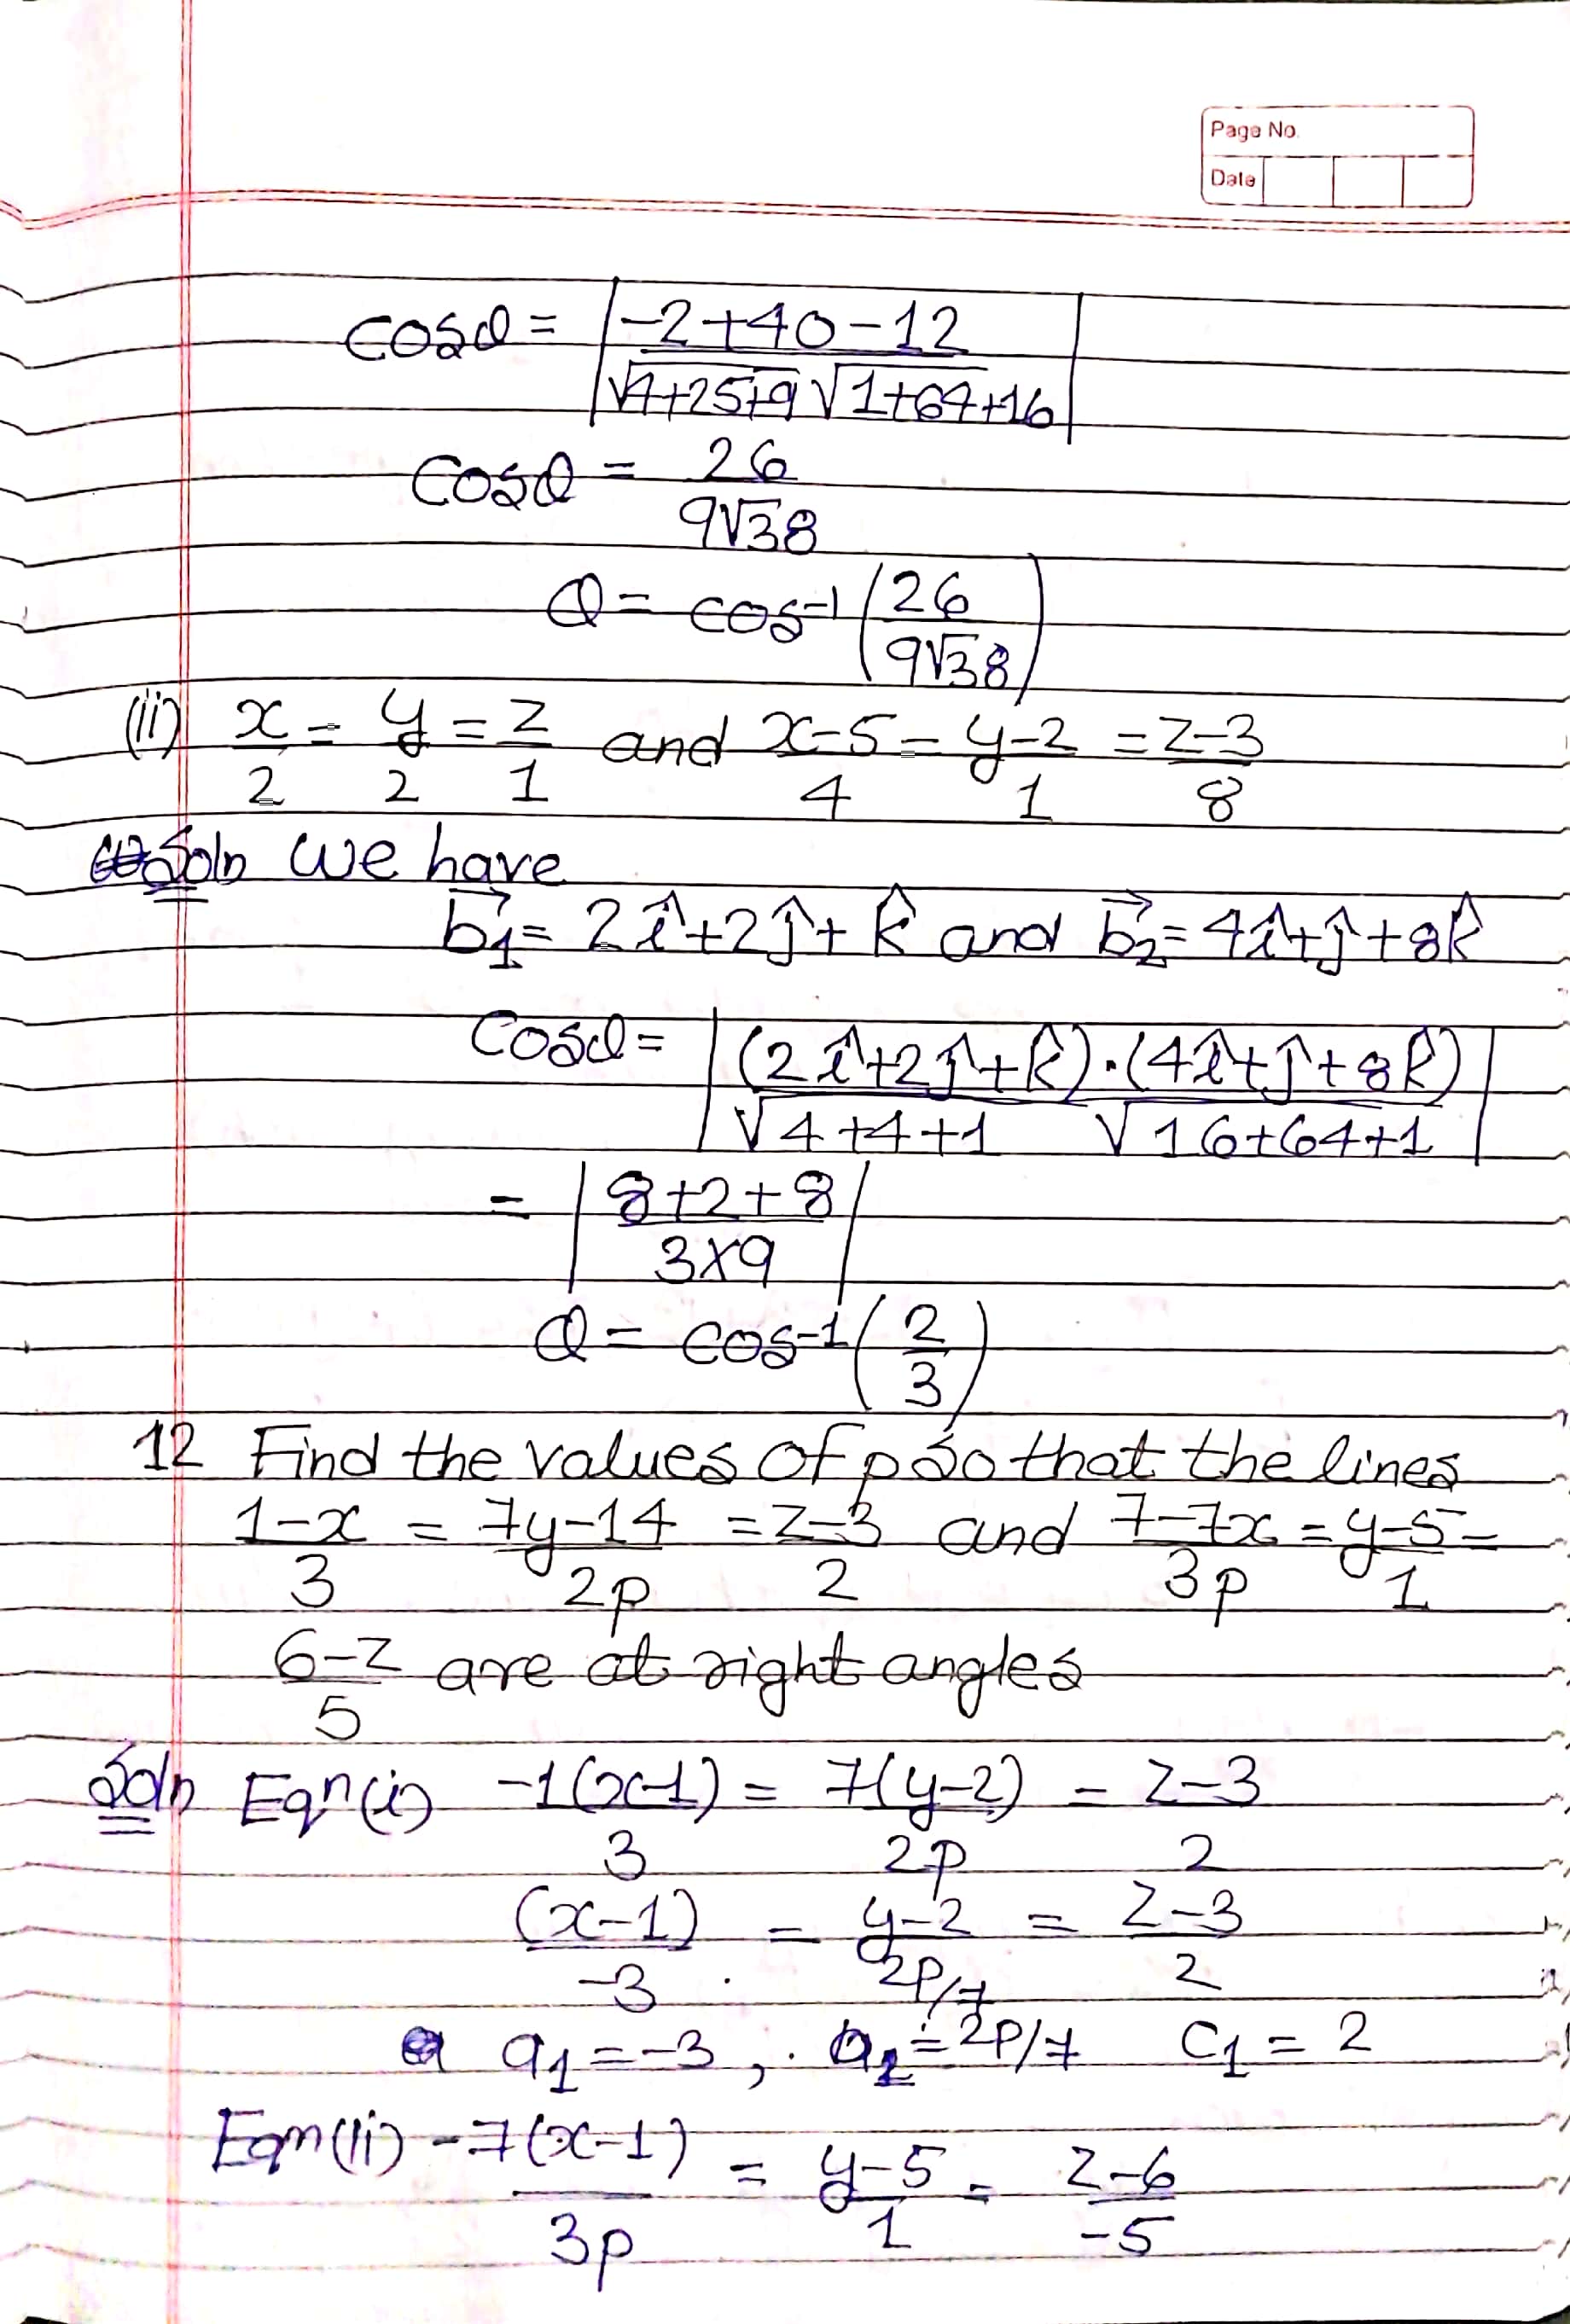 Page No.
Date
cosθ = |(-2+40-12)/(√4+25+9 √1+64+16)|
cosθ = 26/(9√38)
θ = cos⁻¹(26/(9√38))
(ii) x/2 = y/2 = z/1 and (x-5)/4 = (y-2)/1 = (z-3)/8
Soln We have
b₁⃗ = 2î+2ĵ+k̂ and b₂⃗ = 4î+ĵ+8k̂
cosθ = |((2î+2ĵ+k̂)·(4î+ĵ+8k̂))/(√4+4+1 √16+64+1)|
= |(8+2+8)/(3×9)|
θ = cos⁻¹(2/3)
12 Find the values of p so that the lines
(1-x)/3 = (7y-14)/2p = (z-3)/2 and (7-7x)/3p = (y-5)/1 =
(6-z)/5 are at right angles
Soln Eqn(i) -1(x-1)/3 = 7(y-2)/2p = (z-3)/2
(x-1)/-3 = (y-2)/(2p/7) = (z-3)/2
a₁ = -3, a₂ = 2p/7 c₁ = 2
Eqn(ii) -7(x-1)/3p = (y-5)/1 = (z-6)/-5